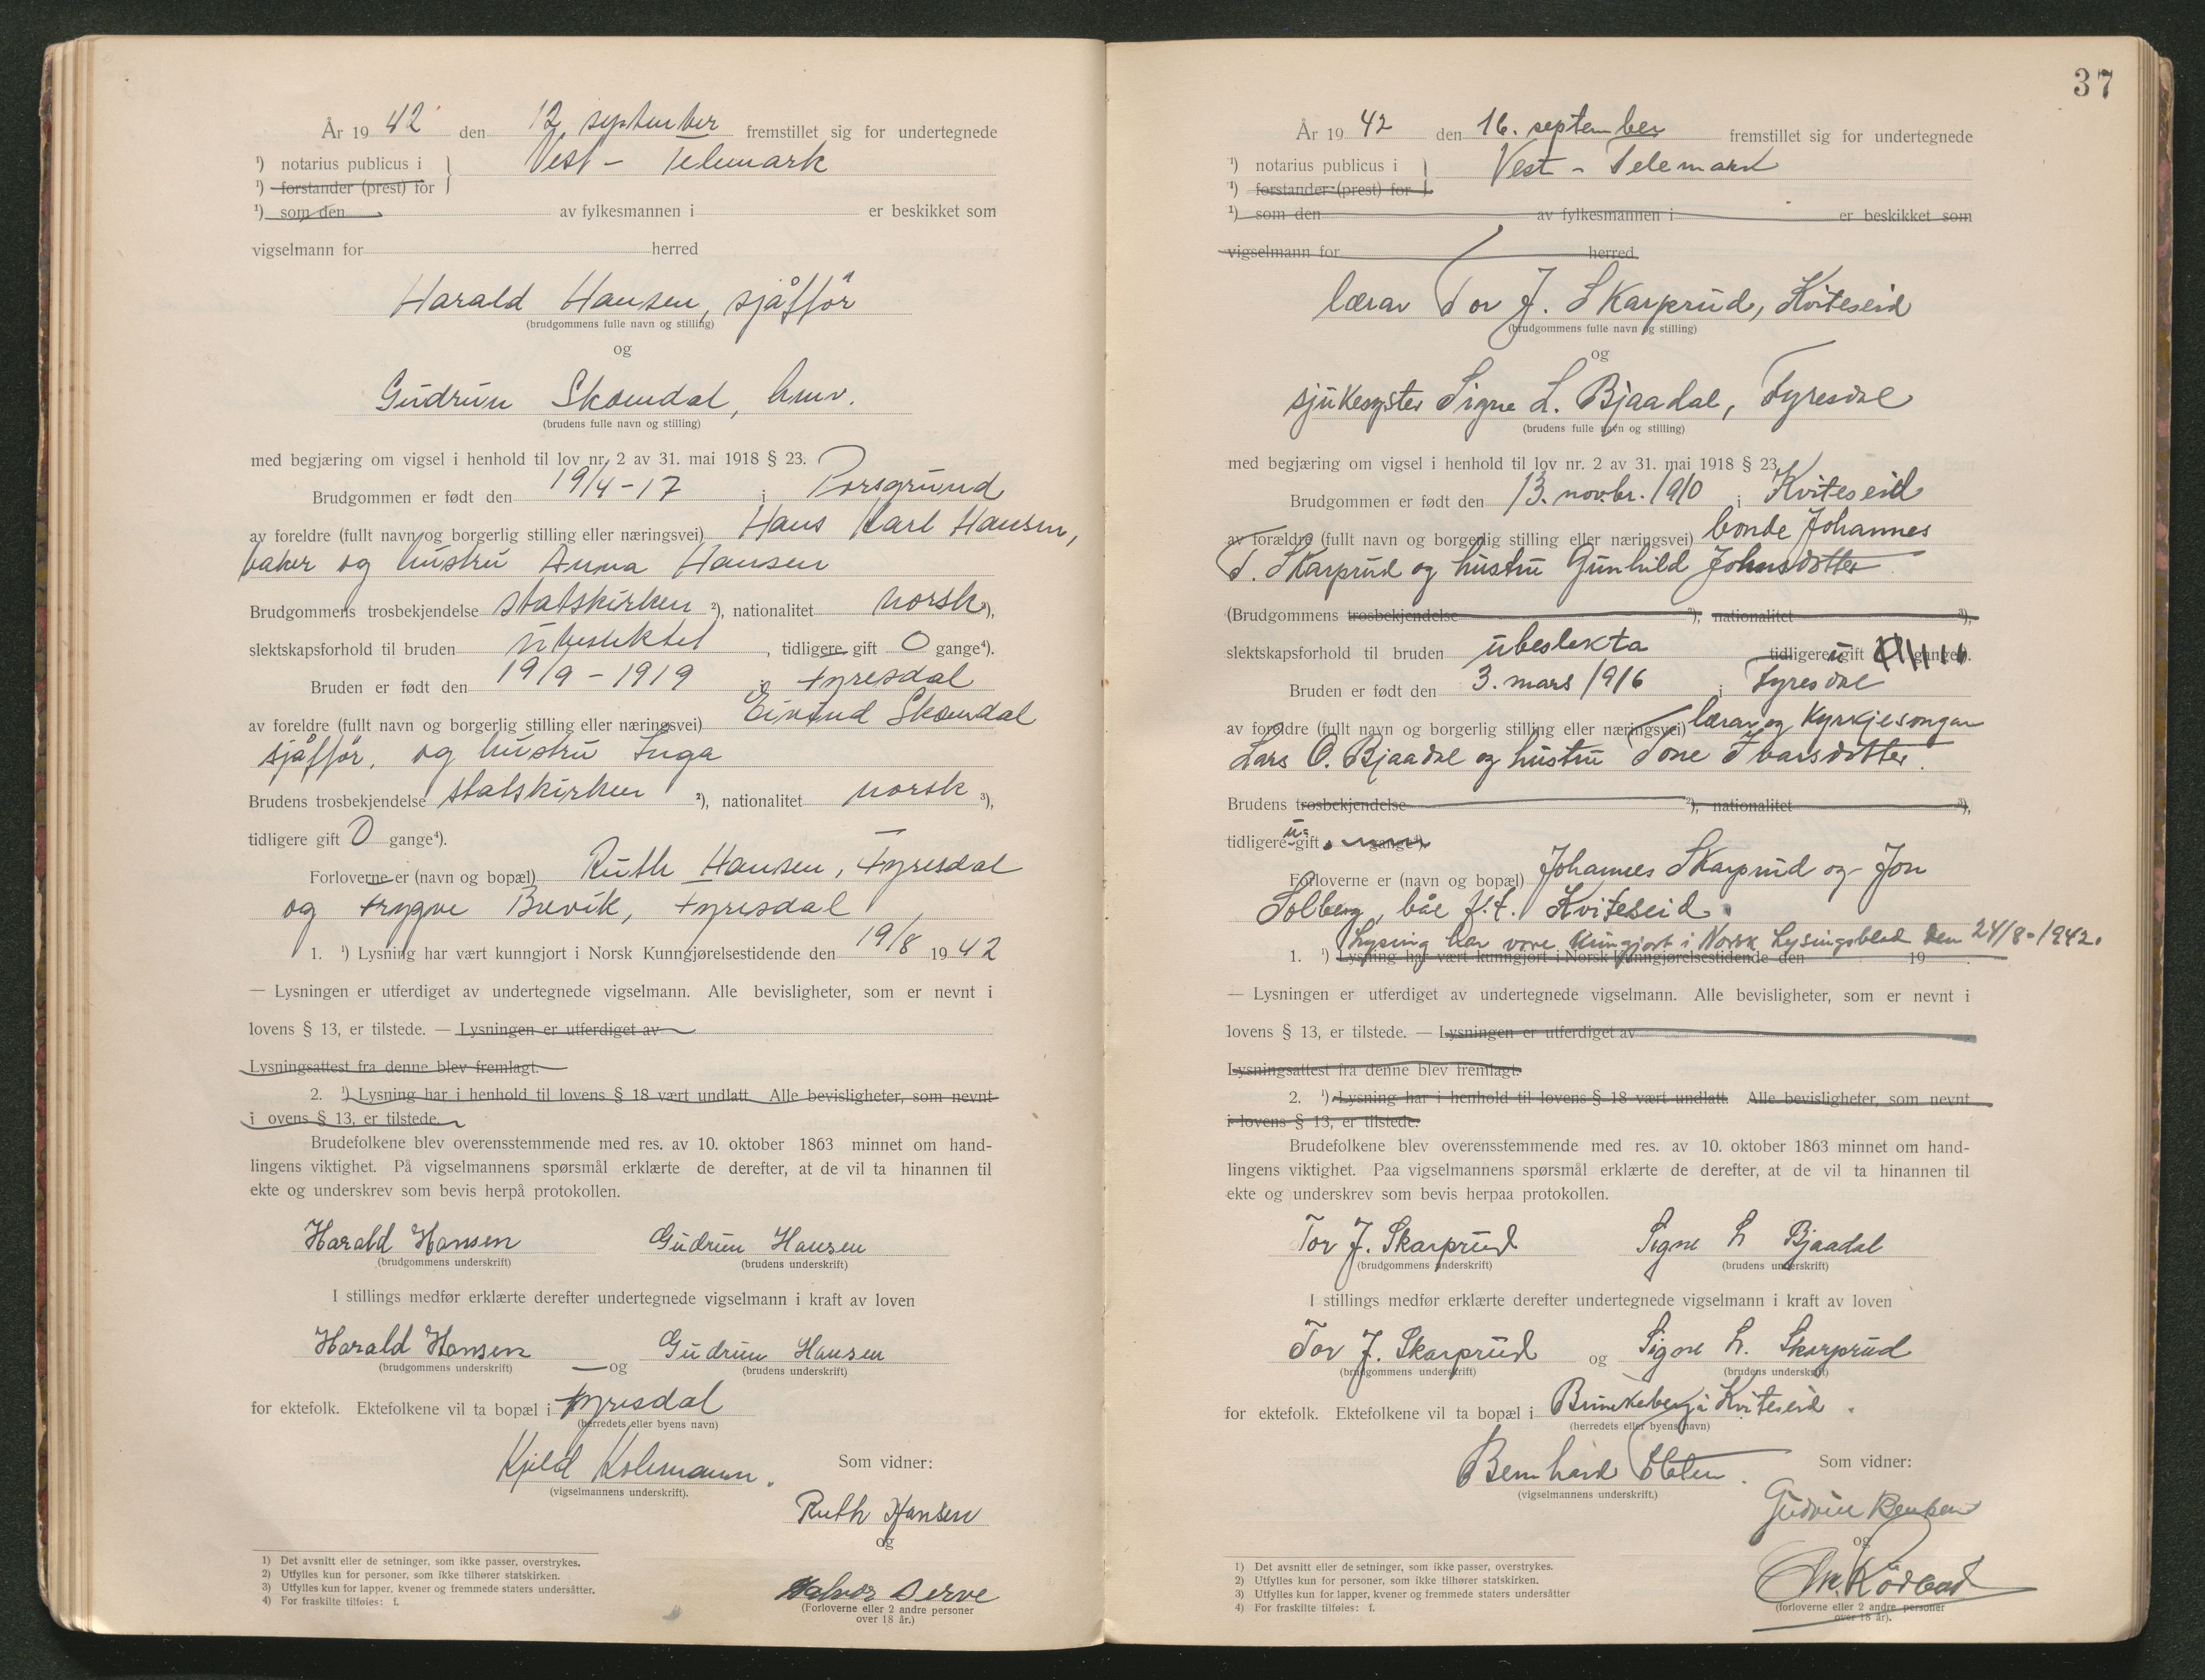 År 19 42 den 12. september fremstillet sig for undertegnede
¹) notarius publicus i } Vest - Telemark
¹) forstander (prest) for
¹) som den av fylkesmannen i er beskikket som
vigselmann for herred
Harald Hansen, sjåffør
(brudgommens fulle navn og stilling)
og
Gudrun Skomdal, hmv.
(brudens fulle navn og stilling)
med begjæring om vigsel i henhold til lov nr. 2 av 31. mai 1918 § 23.
Brudgommen er født den 19/4-17 i Porsgrund
av foreldre (fullt navn og borgerlig stilling eller næringsvei) Hans Karl Hansen,
baker og hustru Anna Hansen
Brudgommens trosbekjendelse statskirken ²), nationalitet norsk ³),
slektskapsforhold til bruden ubeslektet, tidligere gift 0 gange⁴).
Bruden er født den 19/9 - 1919 i Fyresdal
av foreldre (fullt navn og borgerlig stilling eller næringsvei) Eivind Skomdal
sjåffør, og hustru Inga
Brudens trosbekjendelse statskirken ²), nationalitet norsk ³),
tidligere gift 0 gange⁴).
Forloverne er (navn og bopæl) Ruth Hansen, Fyresdal
og Trygve Brevik, Fyresdal
1. ¹) Lysning har vært kunngjort i Norsk Kunngjørelsestidende den 19/8 1942
— Lysningen er utferdiget av undertegnede vigselmann. Alle bevisligheter, som er nevnt i
lovens § 13, er tilstede. — Lysningen er utferdiget av
Lysningsattest fra denne blev fremlagt.
2. ¹) Lysning har i henhold til lovens § 18 vært undlatt Alle bevisligheter, som nevnt
i ovens § 13, er tilstede.
Brudefolkene blev overensstemmende med res. av 10. oktober 1863 minnet om hand-
lingens viktighet. På vigselmannens spørsmål erklærte de derefter, at de vil ta hinannen til
ekte og underskrev som bevis herpå protokollen.
Harald Hansen Gudrun Hansen
(brudgommens underskrift) (brudens underskrift)
I stillings medfør erklærte derefter undertegnede vigselmann i kraft av loven
Harald Hansen og Gudrun Hansen
(brudgommens underskrift) (brudens underskrift)
for ektefolk. Ektefolkene vil ta bopæl i Fyresdal
(herredets eller byens navn)
Kjeld Kolsmann.
(vigselmannens underskrift).
Som vidner:
Ruth Hansen
og
Halvor Berve
(Forloverne eller 2 andre personer
over 18 år.)
1) Det avsnitt eller de setninger, som ikke passer, overstrykes.
2) Utfylles kun for personer, som ikke tilhører statskirken.
3) Utfylles kun for lapper, kvener og fremmede staters undersåtter.
4) For fraskilte tilføies: f.
37
År 19 42 den 16. september fremstillet sig for undertegnede
¹) notarius publicus i } Vest - Telemark
¹) forstander (prest) for
¹) som den av fylkesmannen i er beskikket som
vigselmann for herred
lærar Tor J. Skarprud, Kviteseid
(brudgommens fulle navn og stilling)
og
sjukesyster Signe L. Bjaadal, Fyresdal
(brudens fulle navn og stilling)
med begjæring om vigsel i henhold til lov nr. 2 av 31. mai 1918 § 23
Brudgommen er født den 13. novbr. 1910 i Kviteseid
av forældre (fullt navn og borgerlig stilling eller næringsvei) bonde Johannes
T. Skarprud og hustru Gunhild Johnsdotter
(Brudgommens trosbekjendelse ²), nationalitet ³),
slektskapsforhold til bruden ubeslekta tidligere u gift gange⁴).
Bruden er født den 3. mars 1916 i Fyresdal
av foreldre (fullt navn og borgerlig stilling eller næringsvei) lærar og kyrkjesongar
Lars O. Bjaadal og hustru Tone Ivarsdotter.
Brudens trosbekjendelse ²), nationalitet ³),
tidligere u- gift gange⁴).
Forloverne er (navn og bopæl) Johannes Skarprud og Jon
Solberg, båe f.t. Kviteseid.
Lysing har vore kungjort i Norsk Lysingsblad den 24/8-1942.
1. ¹) Lysning har vært kunngjort i Norsk Kunngjørelsestidende den 19
— Lysningen er utferdiget av undertegnede vigselmann. Alle bevisligheter, som er nevnt i
lovens § 13, er tilstede. — Lysningen er utferdiget av
Lysningsattest fra denne blev fremlagt.
2. ¹) Lysning har i henhold til lovens § 18 vært undlatt. Alle bevisligheter, som nevnt
i lovens § 13, er tilstede.
Brudefolkene blev overensstemmende med res. av 10. oktober 1863 minnet om hand-
lingens viktighet. Paa vigselmannens spørsmål erklærte de derefter, at de vil ta hinannen til
ekte og underskrev som bevis herpaa protokollen.
Tor J. Skarprud Signe L Bjaadal
(brudgommens underskrift) (brudens underskrift)
I stillings medfør erklærte derefter undertegnede vigselmann i kraft av loven
Tor J. Skarprud og Signe L. Skarprud
(brudgommens underskrift) (brudens underskrift)
for ektefolk. Ektefolkene vil ta bopæl i Brunkeberg i Kviteseid.
(herredets eller byens navn)
Bernhard
(vigselmannens underskrift.)
Som vidner:
Gudrun
og
(forloverne eller 2 andre personer
over 18 år).
1) Det avsnitt eller de setninger, som ikke passer, overstrykes.
2) Utfylles kun for personer, som ikke tilhører statskirken.
3) Utfylles kun for lapper, kvener og fremmede staters undersåtter
4) For fraskilte tilføies: f.